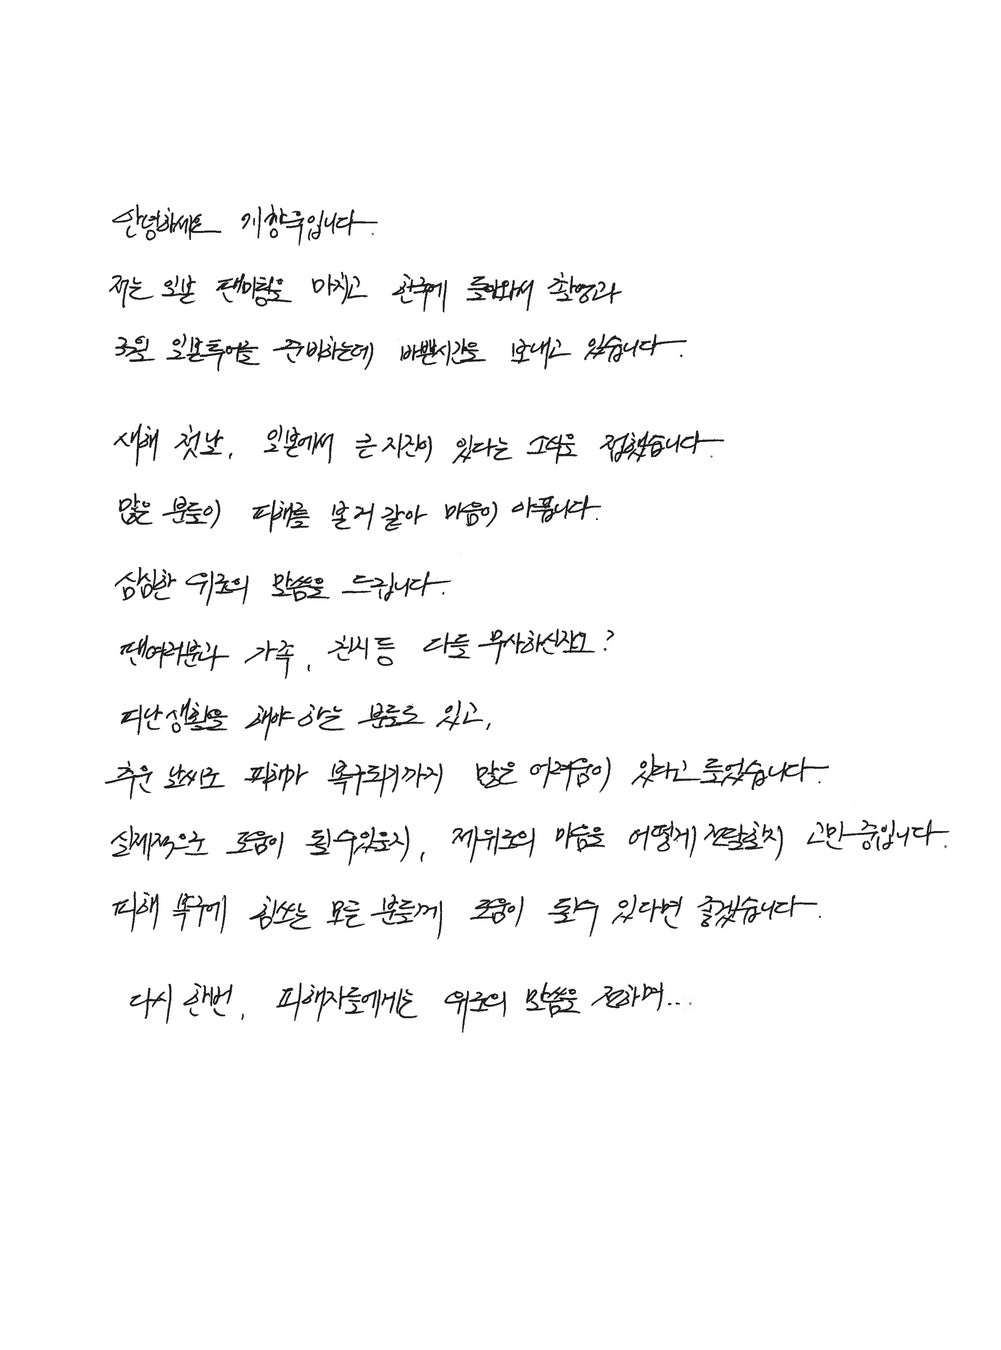 안녕하세요 지창욱입니다.
저는 일본 팬미팅을 마치고 한국에 돌아와서 촬영과
3월 일본투어를 준비하는데 바쁜시간을 보내고 있습니다.
새해 첫날, 일본에서 큰 지진이 있다는 소식을 접했습니다.
많은 분들이 피해를 본거 같아 마음이 아픕니다.
심심한 위로의 말씀을 드립니다.
팬여러분과 가족, 친지등 다들 무사하신지요?
피난생활을 해야 하는 분들도 있고,
추운 날씨로 피해가 복구되기까지 많은 어려움이 있다고 들었습니다.
실제적으로 도움이 될수있을지, 제위로의 마음을 어떻게 전달할지 고민 중입니다.
피해 복구에 힘쓰는 모든 분들께 도움이 될수 있다면 좋겠습니다.
다시 한번, 피해자들에게는 위로의 말씀을 전하며...